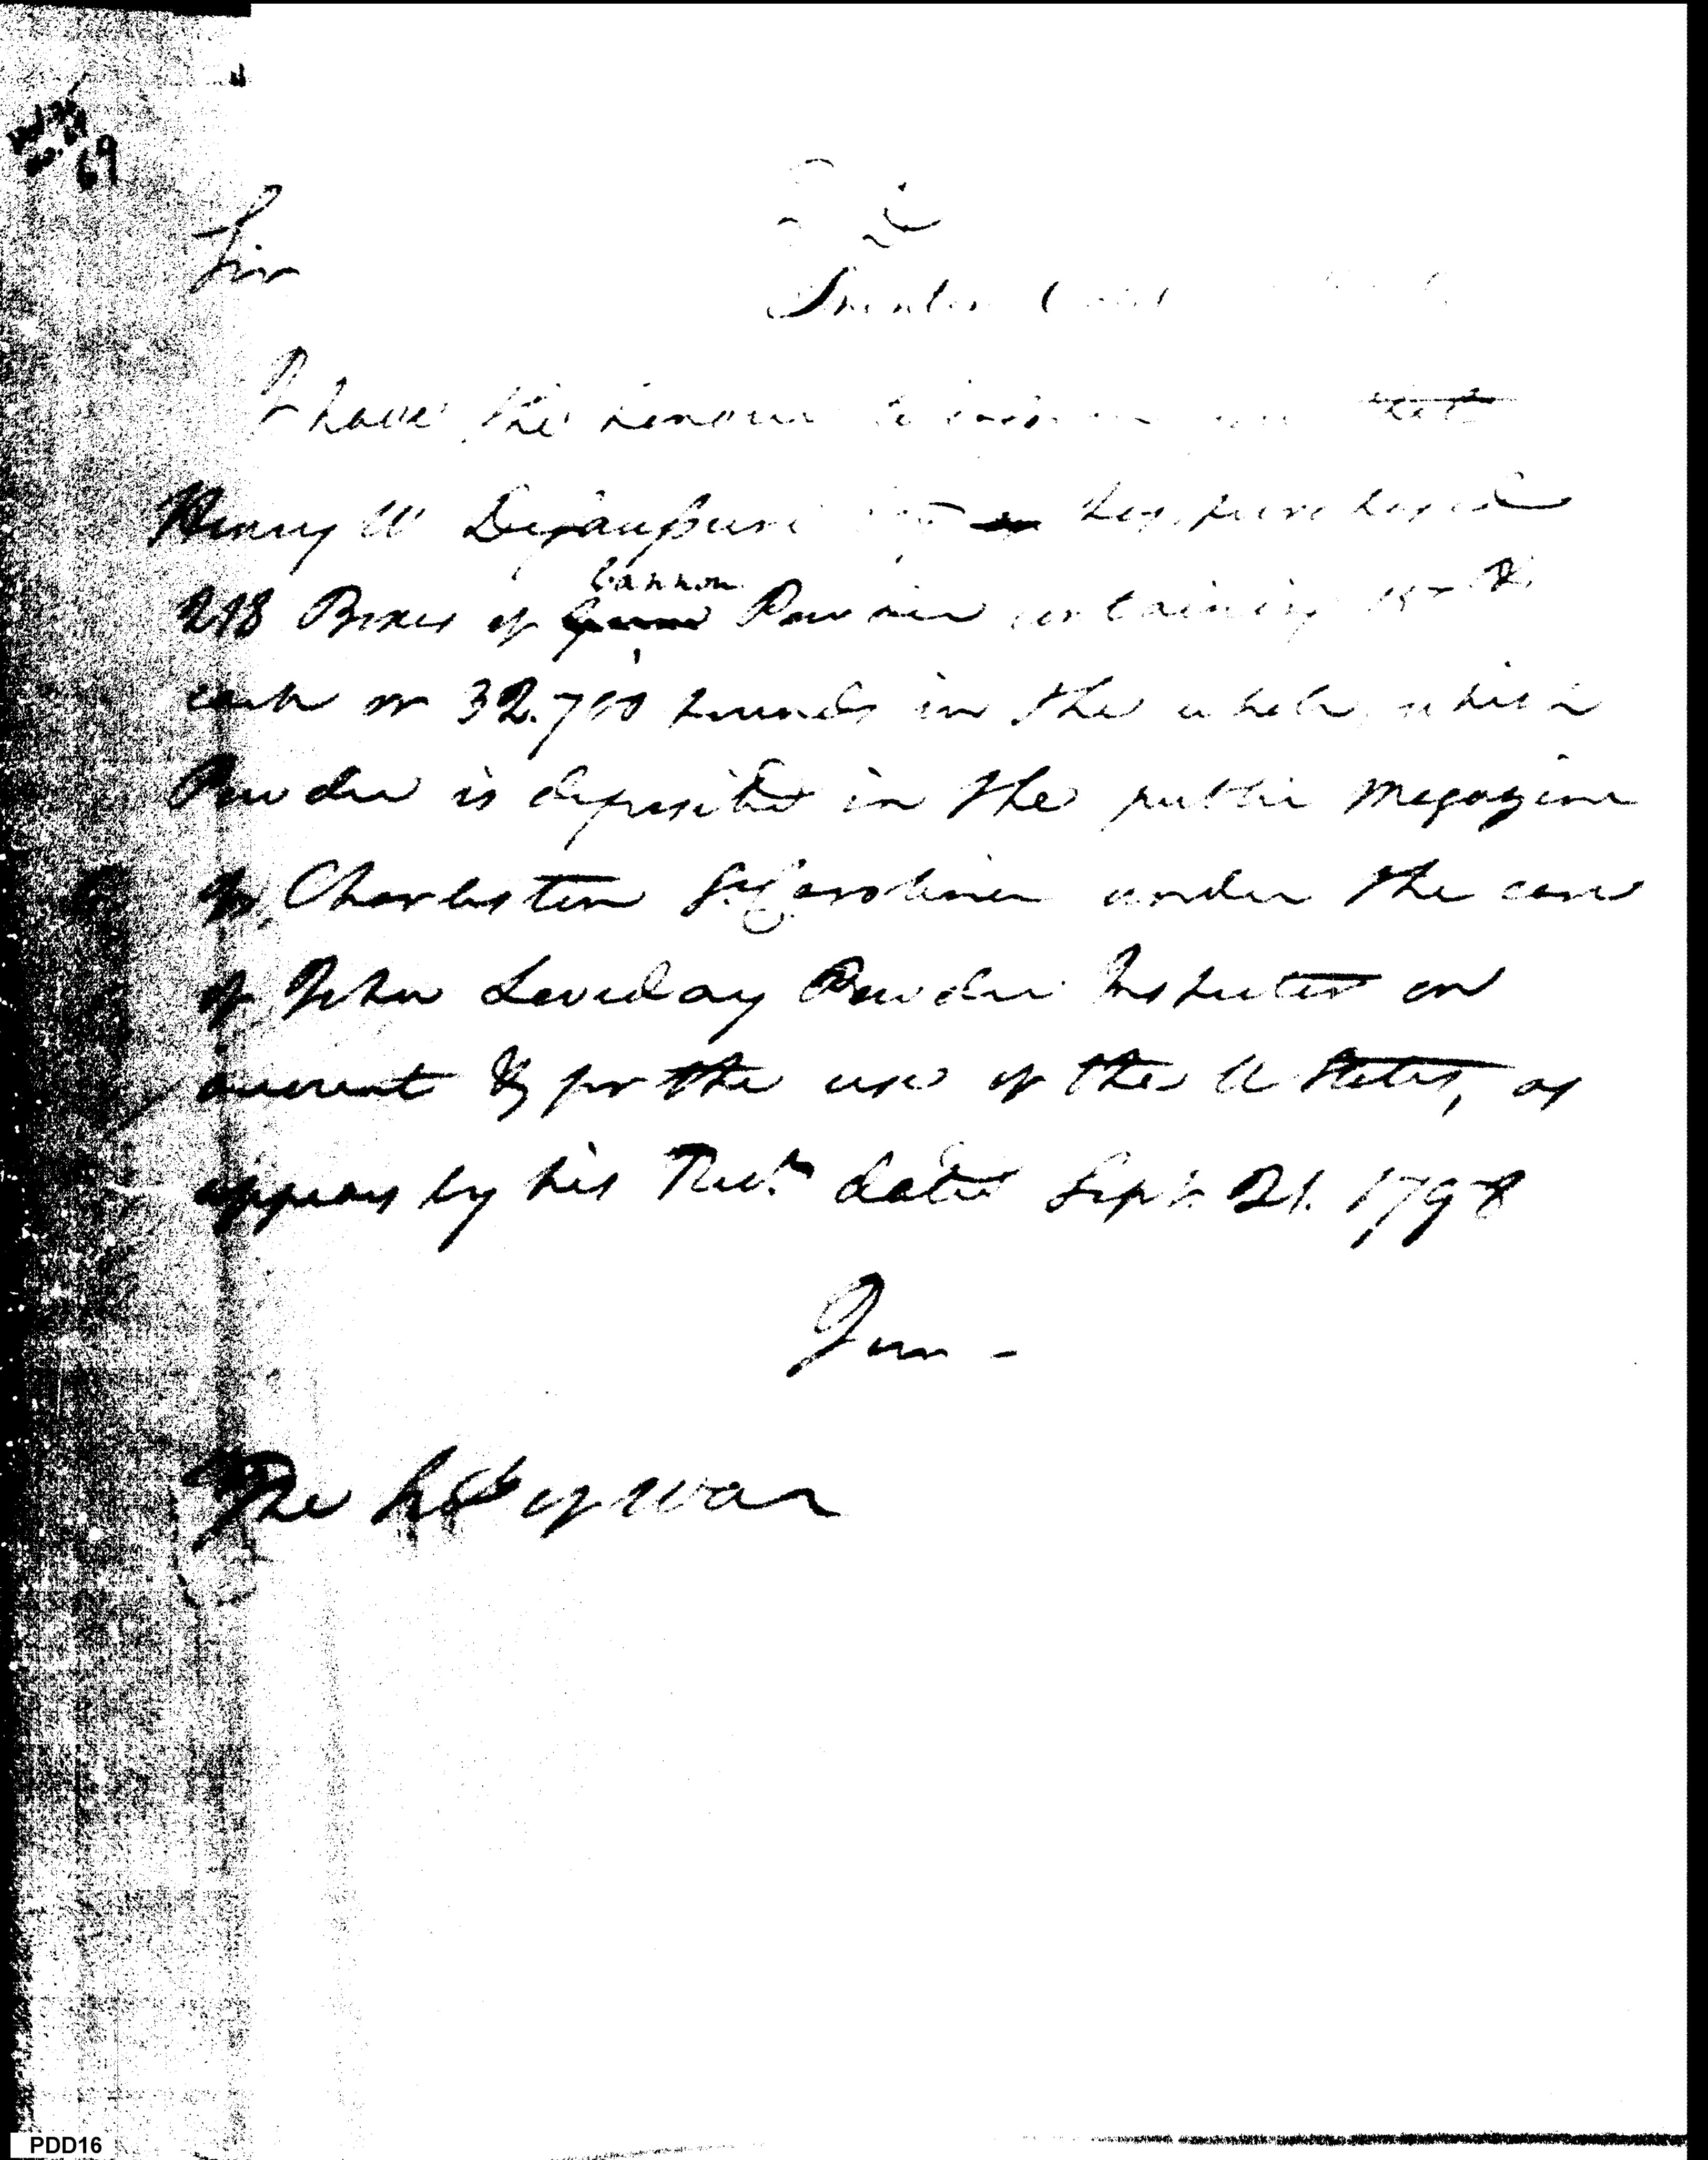 69
Sir
Trenton
I have the honour to inform you that
Henry W has purchased
218 Boxes of Cannon Powder containing
each or 32.700 pounds in the whole, which
Powder is deposited in the public Magazine
of Charleston S. Carolina under the care
of John Loveday Powder Inspector on
account & for the use of the U States, as
appears by his dated Sept. 21. 1798
The Secy of War
PDD16